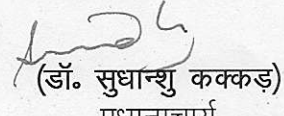 (डॉ० सुधान्शु कक्कड़)
प्रधानाचार्य